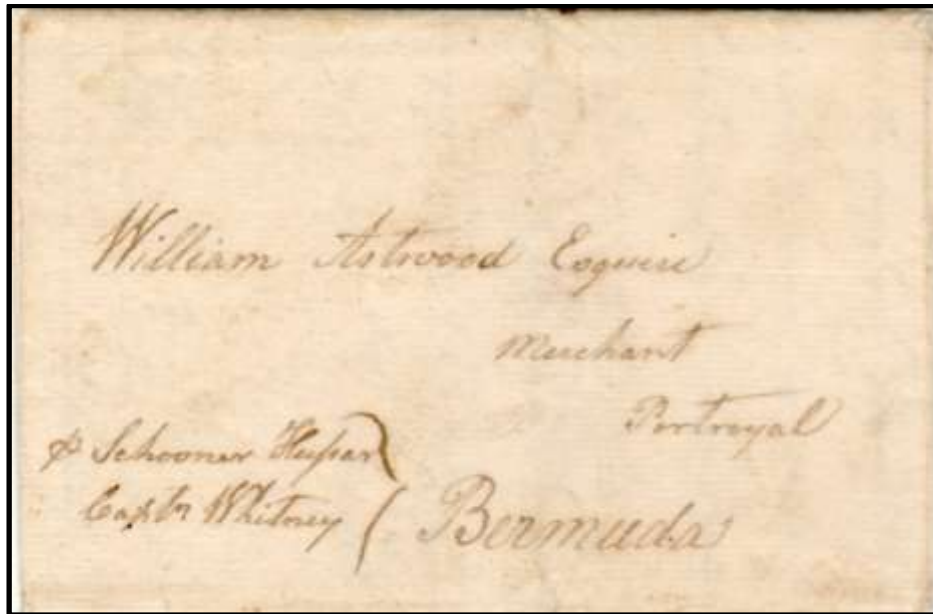 William Astwood Esquire
Merchant
Portroyal
℔ Schooner Hussar
Captn Whitney
Bermuda